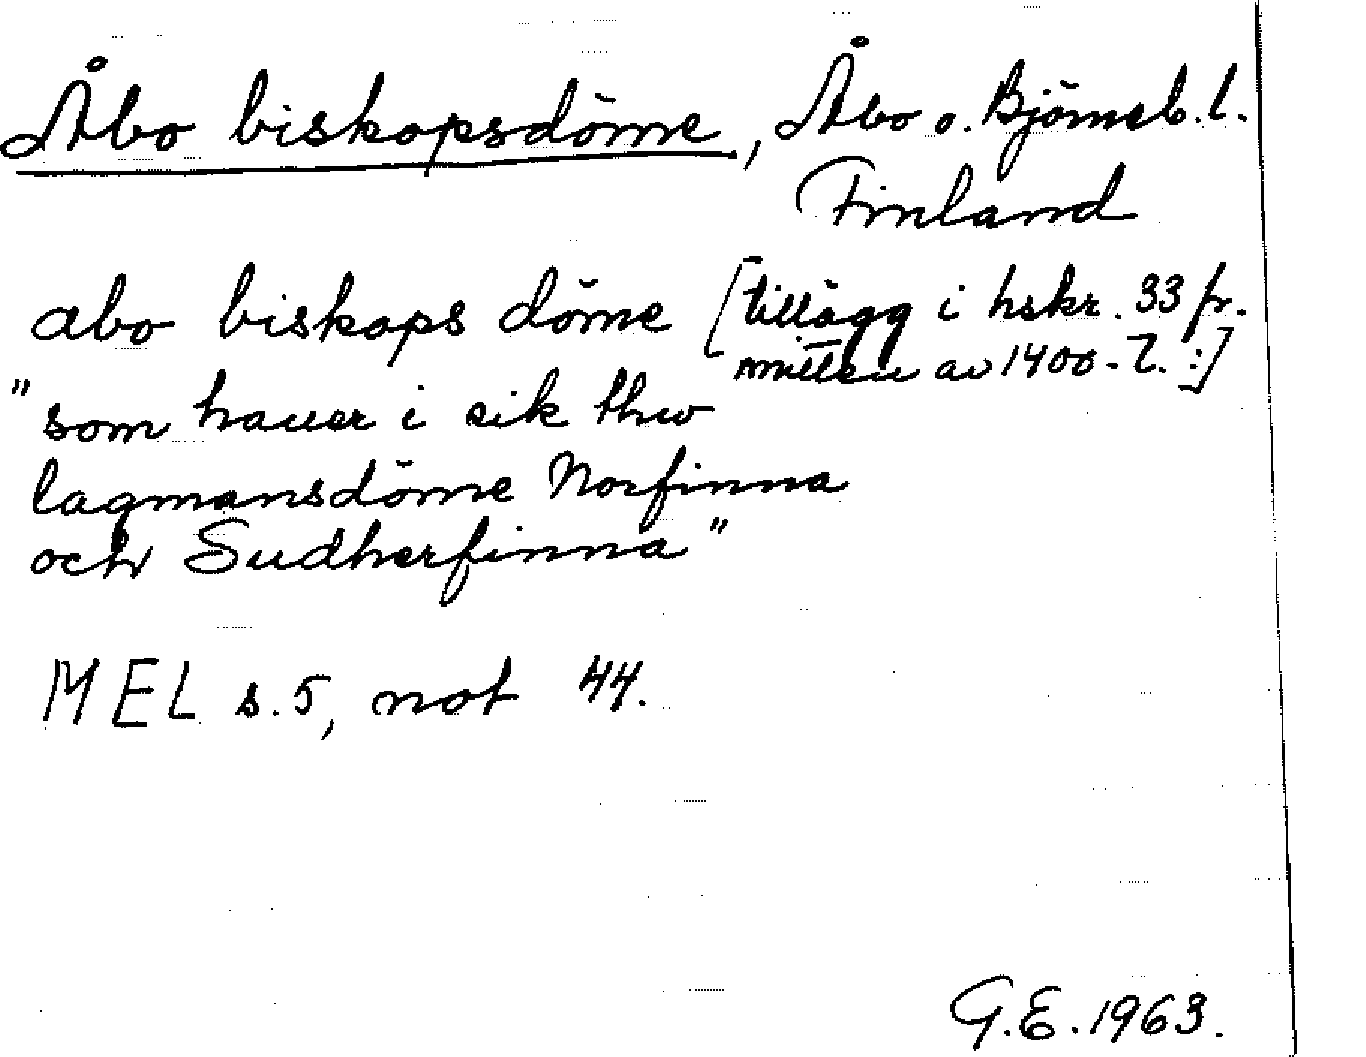 Åbo biskopsdöme, Åbo o. Björneb. l.
Finland
abo biskops döme [tillägg i hskr. 33 fr.
mitten av 1400-t. :]
"som hauer i sik thw
lagmansdöme Norfinna
och Sudherfinna"
MEL s. 5, not 44.
G.E. 1963.